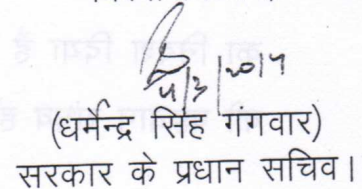 4/3/2014
(धर्मेन्द्र सिंह गंगवार)
सरकार के प्रधान सचिव।